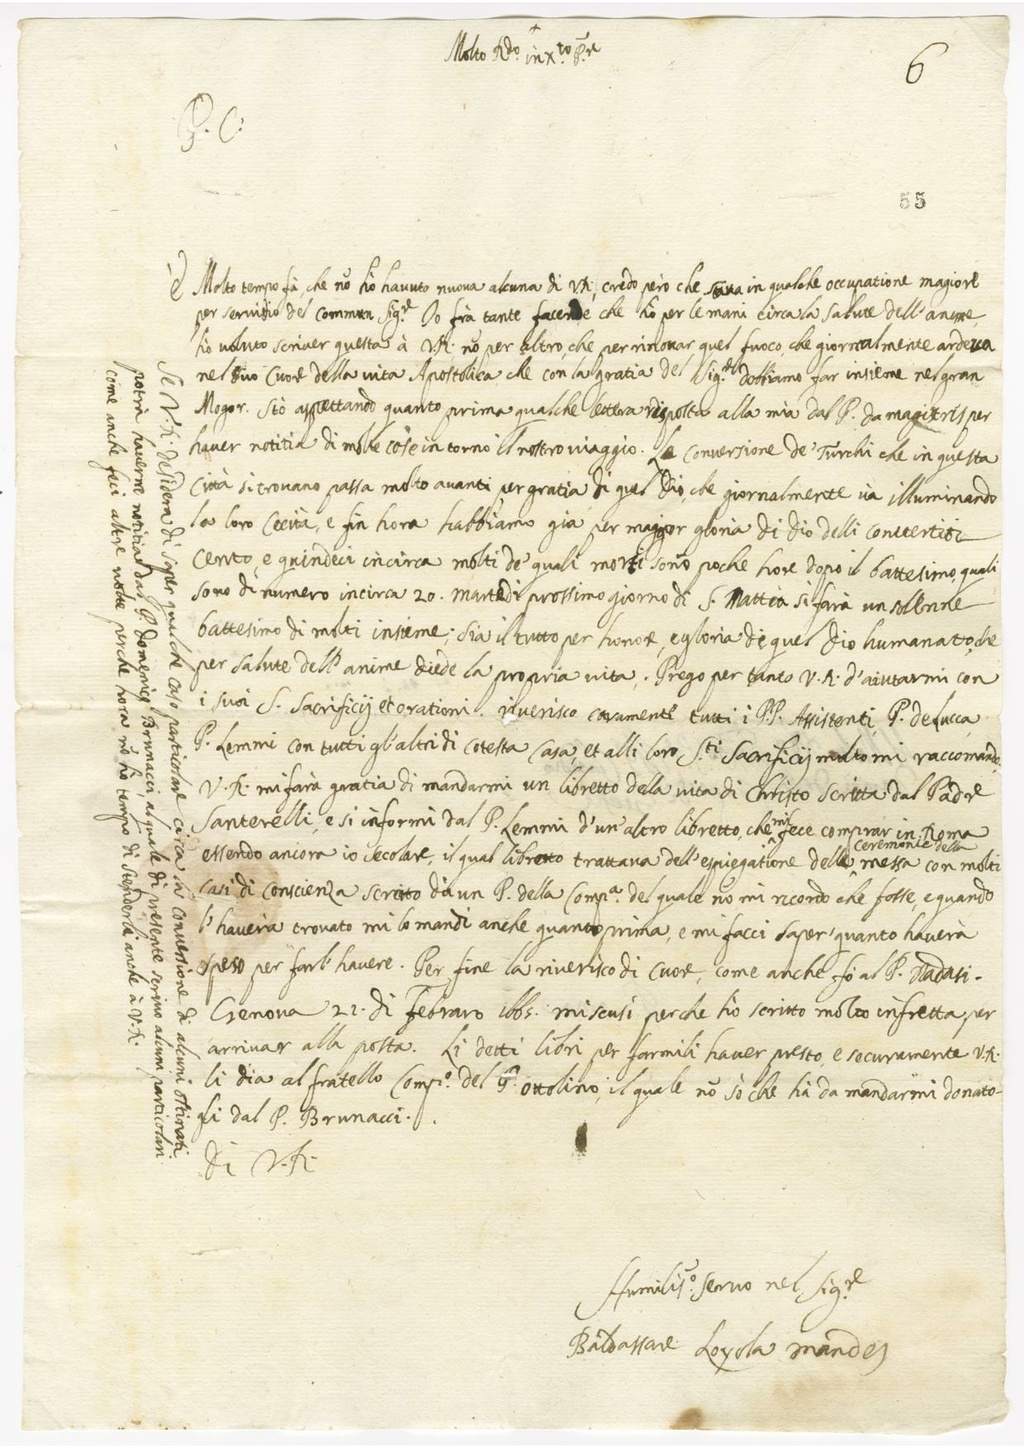 +
Molto Rdo. in xto. P.re
6
P. C:
55
è Molto tempo fà, che nõ hò havuto nuova alcuna di V.R., credo però che starà in qualche occupatione magiore
per servitio del commun Sig.re Io frà tante facende che hò per le mani circa la salute dell'anime,
hò voluto scriver questa à V.R. nõ per altro, che per rinovar quel fuoco, che giornalmente ardeva
nel suo Cuore della vita Apostolica che con la gratia del Sig.re dobbiamo far insieme nel gran
Mogor. Stò aspettando quanto prima qualche lettera risposta alla mia dal P. da magistris per
haver notitia di molte cose in torno il nostro viaggio. La Conversione de' Turchi che in questa
Città si trovano passa molto avanti per gratia di quel Dio, che giornalmente và illuminando
la loro Cecità, e fin hora habbiamo già per maggior gloria di Dio delli convertiti
Cento, e quindeci incirca molti de' quali morti sono poche hore dopo il battesimo, quali
sono di numero incirca 20. martedi prossimo giorno di S. Mattia si farà un sollenne
battesimo di molti insieme; sia il tutto per honore, e gloria di quel Dio humanato, che
per salute dell'anime diede la propria vita. Prego per tanto V.R. d'aiutarmi con
i suoi S. Sacrificij et orationi. riverisco caramente tutti i P.P. Assistenti, P. de Lucca
P. Lemmi con tutti gl'altri di cotesta Casa, et alli loro S.ti Sacrificij molto mi raccomando.
V.R. mi farà gratia di mandarmi un libretto della vita di Christo scritta dal Padre
Santerelli, e si informi dal P. Lemmi d'un'altro libretto, che mi fece comprar in Roma
essendo ancora io secolare, il qual libretto trattava dell'espiegatione delle ceremonie della messa con molti
casi di conscienza scritto da un P. della Comp.a del quale nõ mi ricordo che fosse, e quando
l'haverà trovato mi lo mandi anche quanto prima, e mi facci saper' quanto haverà
speso per farl' havere. Per fine la riverisco di Cuore, come anche fò al P. Nadasi.
Genova 22. di Febraro 1665. mi scusi perche hò scritto molto in fretta per
arrivaer alla posta. Li detti libri per farmili haver presto, e securamente V.R.
li dia al fratello Comp.o del P. Ottolino, il quale nõ sò che hà da mandarmi donato-
gli dal P. Brunacci.
di V.R.
Humiliss.o servo nel Sig.re
Baldassare Loyola mandes
Se V.R. desidera di saper qualche caso particolare circa la conversione di alcuni ostinati
potrà haverne notitia dal P. Domenico Brunacci, al quale di presente scrivo alcuni particolari
come anche feci altre volte, perche hora nõ hò tempo di stenderli anche à V.R.